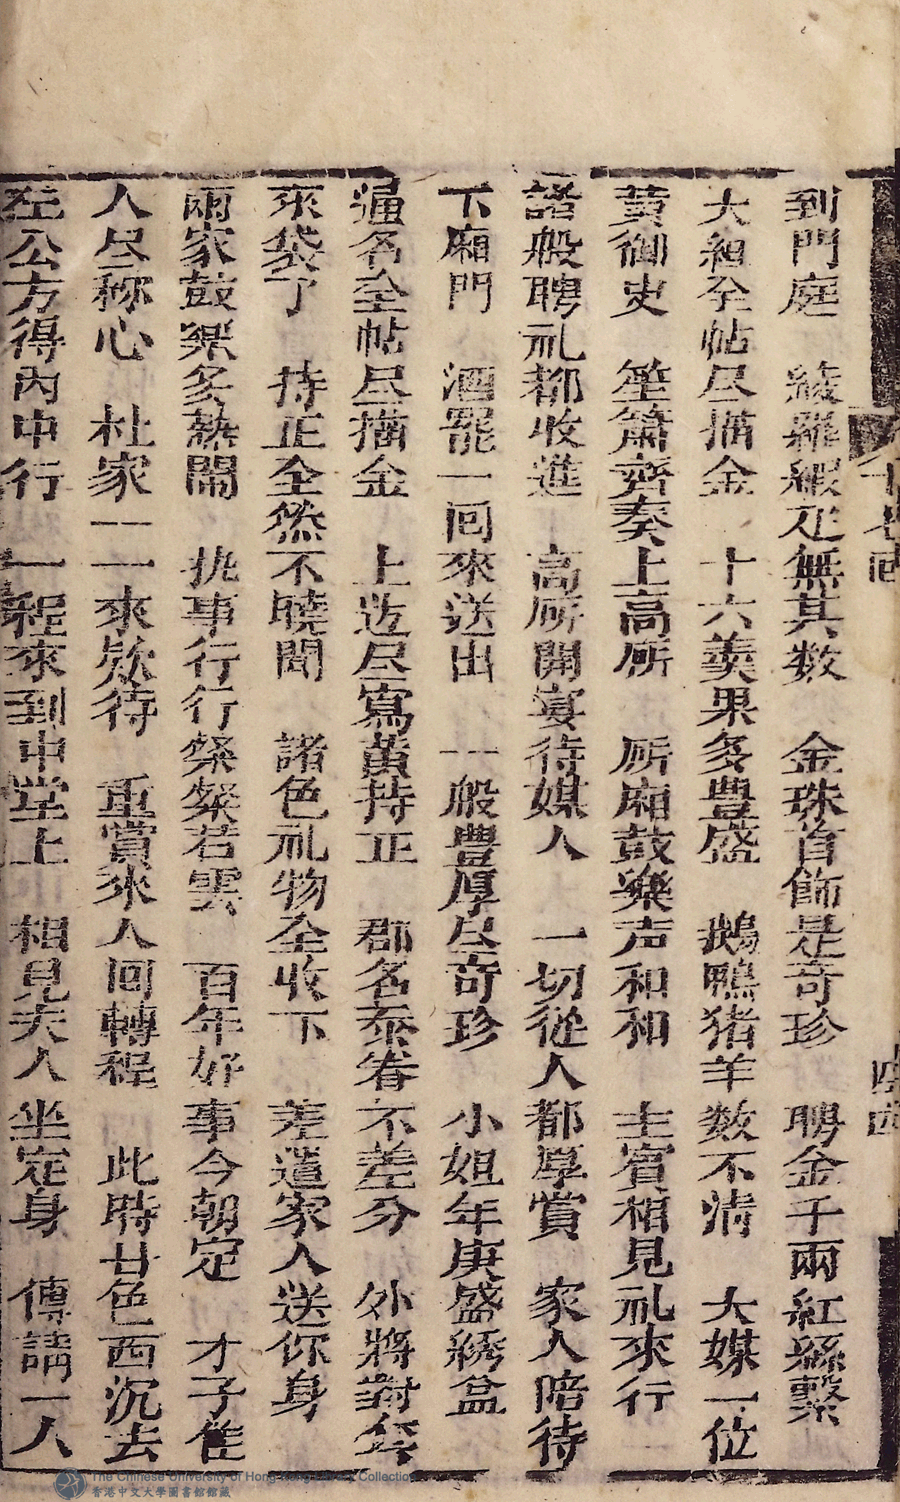 十七回
到門庭　綾羅緞疋無其数　金珠首飾是奇珍　聘金千兩紅絲繫
大紅全帖尽描金　十六羹果多豊盛　鵝鴨猪羊数不清　大媒一位
黄御史　笙簫齊奏上高所　所廂鼓樂声和和　主賓相見礼來行
諸般聘礼都收進　高所開宴待媒人　一切從人都厚賞　家人陪待
下廂門　酒罷一回來送出　一般豊厚尽奇珍　小姐年庚盛綉盆
通名全帖尽描金　上边尽寫黄持正　郡名泰眷不差分　外將對
來袋了　持正全然不曉聞　諸色礼物全收下　差遣家人送你身
兩家鼓樂多熱鬧　执事行行粲粲若雲　百年好事今朝定　才子佳
人尽称心　杜家一一來欵待　重賞來人回轉程　此時廿色西沉去
左公方得內中行　一程來到中堂上　相見夫人坐定身　傳請一人
The Chinese University of Hong Kong Library Collection
香港中文大學圖書館館藏